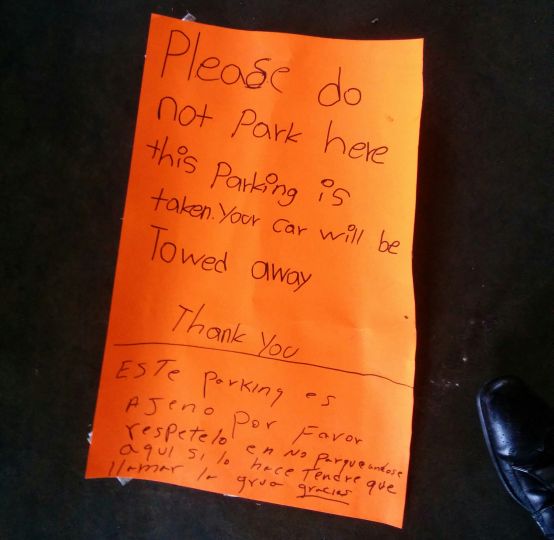 Please do
not Park here
this Parking is
taken. Your car will be
Towed away
Thank You
ESTe parking es
AJeno Por Favor
respetelo en No parqueandose
aqui si lo hace Tendre que
llamar la grua gracias